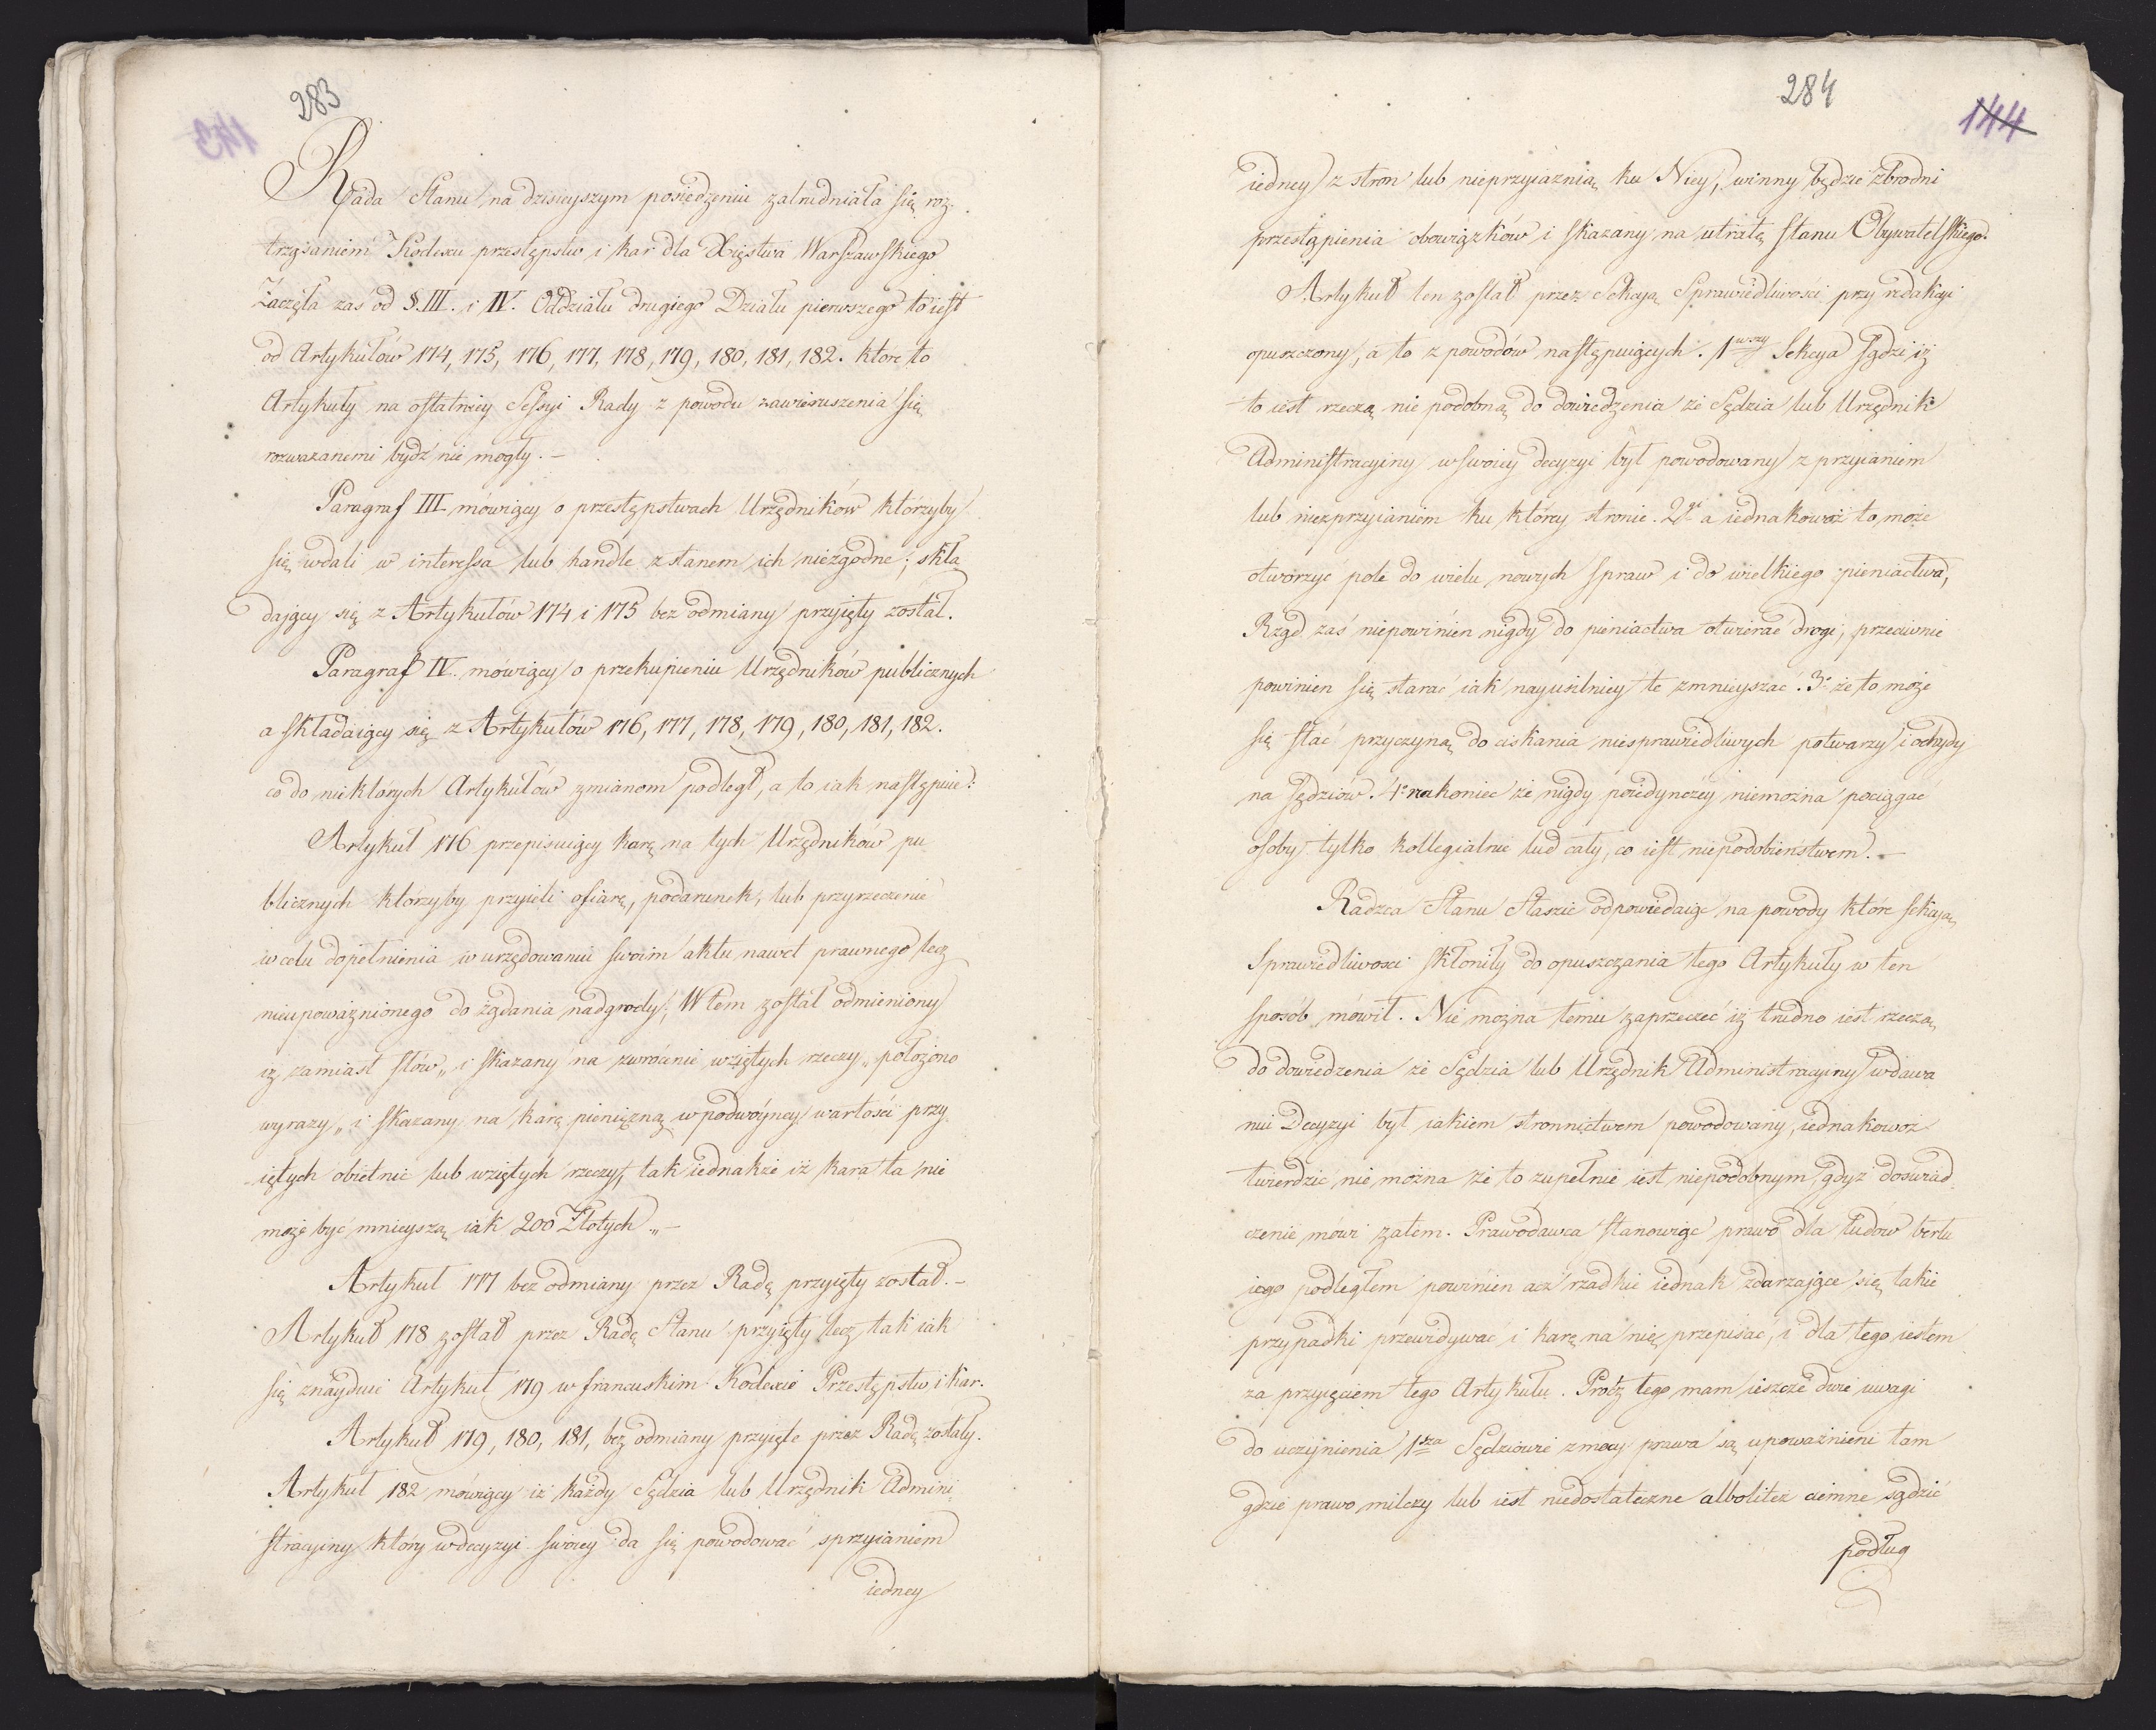 283
143
Rada Stanu na dzisieyszym posiedzeniu zatrudniała się roz-
trząsaniem Kodexu przestępstw i kar dla Xięstwa Warszawskiego
Zaczęła zas od §. III. i IV. Oddziału drugiego Działu pierwszego to iest
od Artykułów 174, 175, 176, 177, 178, 179, 180, 181, 182. które to
Artykuły na ostatniey Sessyi Rady z powodu zawieruszenia się
rozwazanemi bydź nie mogły. —
Paragraf III mówiący o przestępstwach Urzędników którzyby
się wdali w interessa lub handle z stanem ich niezgodne; skła
dający się z Artykułów 174 i 175 bez odmiany przyięty został.
Paragraf IV. mówiący o przekupieniu Urzędników publicznych
a składaiący się z Artykułów 176, 177, 178, 179, 180, 181, 182.
co do niektórych Artykułów zmianom podległ, a to iak następuie:
Artykuł 176 przepisuiący karę na tych Urzędników pu
blicznych którzyby przyieli ofiarę, podarunek, lub przyrzeczenie
w celu dopełnienia w urzędowaniu swoim aktu nawet prawnego lecz
nieupoważnionego do żądania nadgrody; W tem został odmieniony
iż zamiast słów „i skazany na zwrócenie wziętych rzeczy„ położono
wyrazy „i skazany na karę pieniężną w podwóyney wartości przy
iętych obietnic lub wziętych rzeczy, tak iednakże iż kara ta nie
może być mnieyszą iak 200 Złotych„ —
Artykuł 177 bez odmiany przez Radę przyięty został. —
Artykuł 178 został przez Radę Stanu przyięty lecz tak iak
się znayduie Artykuł 179 w francuskim Kodexie Przestępstw i kar.
Artykuł 179, 180, 181, bez odmiany przyięte przez Radę zostały.
Artykuł 182 mówiący iż każdy Sędzia lub Urzędnik Admini
stracyiny który w decyzyi swoiey da się powodować sprzyianiem
iedney
284
144
iedney z stron lub nieprzyiaźnią ku Niey, winny będzie zbrodni
przestąpienia obowiązków i skazany na utratę stanu Obywatelskiego.
Artykuł ten został przez Sekcyą Sprawiedliwości przy redakcyi
opuszczony, a to z powodów następuiących. 1wszy Sekcya sądzi iż
to iest rzeczą nie podobną do dowiedzenia że Sędzia lub Urzędnik
Administracyiny w swoiey decyzyi był powodowany z przyianiem
lub niezprzyianiem ku którey stronie. 2gi a iednakowoż to może
otworzyć pole do wielu nowych spraw i do wielkiego pieniactwa,
Rząd zaś niepowinien nigdy do pieniactwa otwierać drogi, przeciwnie
powinien się starać iak nayusilniey te zmnieyszać. 3e że to może
się stać przyczyną do ciskania niesprawiedliwych potwarzy i ochydy
na Sędziów. 4e nakoniec że nigdy poiedynczey niemożna pociągać
osoby tylko kollegialnie lud cały, co iest niepodobieństwem. —
Radzca Stanu Staszic odpowiedaiąc na powody które sekcyą
Sprawiedliwości skłoniły do opuszczania tego Artykuły w ten
sposób mówił. Nie można temu zaprzeczeć iż trudno iest rzeczą
do dowiedzenia że Sędzia lub Urzędnik Administracyiny w dawa
niu Decyzyi był iakiem stronnictwem powodowany, iednakowoż
twierdzic nie można że to zupełnie iest niepodobnym, gdyż doswiad
czenie mówi zatem. Prawodawca stanowiąc prawo dla ludów berłu
iego podległem powinien acz rzadkie iednak zdarzające się takie
przypadki przewidywać i karę na nię przepisać, i dla tego iestem
za przyięciem tego Artykułu. Procz tego mam ieszcze dwie uwagi
do uczynienia 1sza Sędziowie z mocy prawa są upoważnieni tam
gdzie prawo milczy lub iest niedostateczne albolitez ciemne sądzić
podług